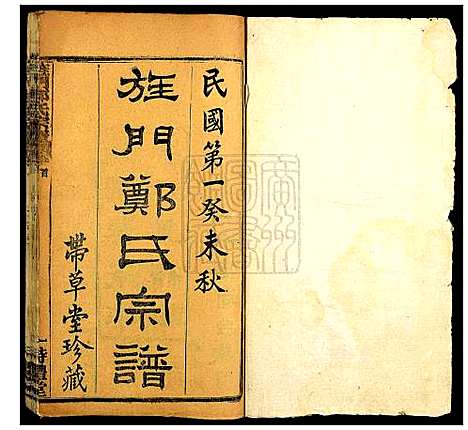 民國第一癸未秋
旌門鄭氏宗譜
帶草堂珍藏